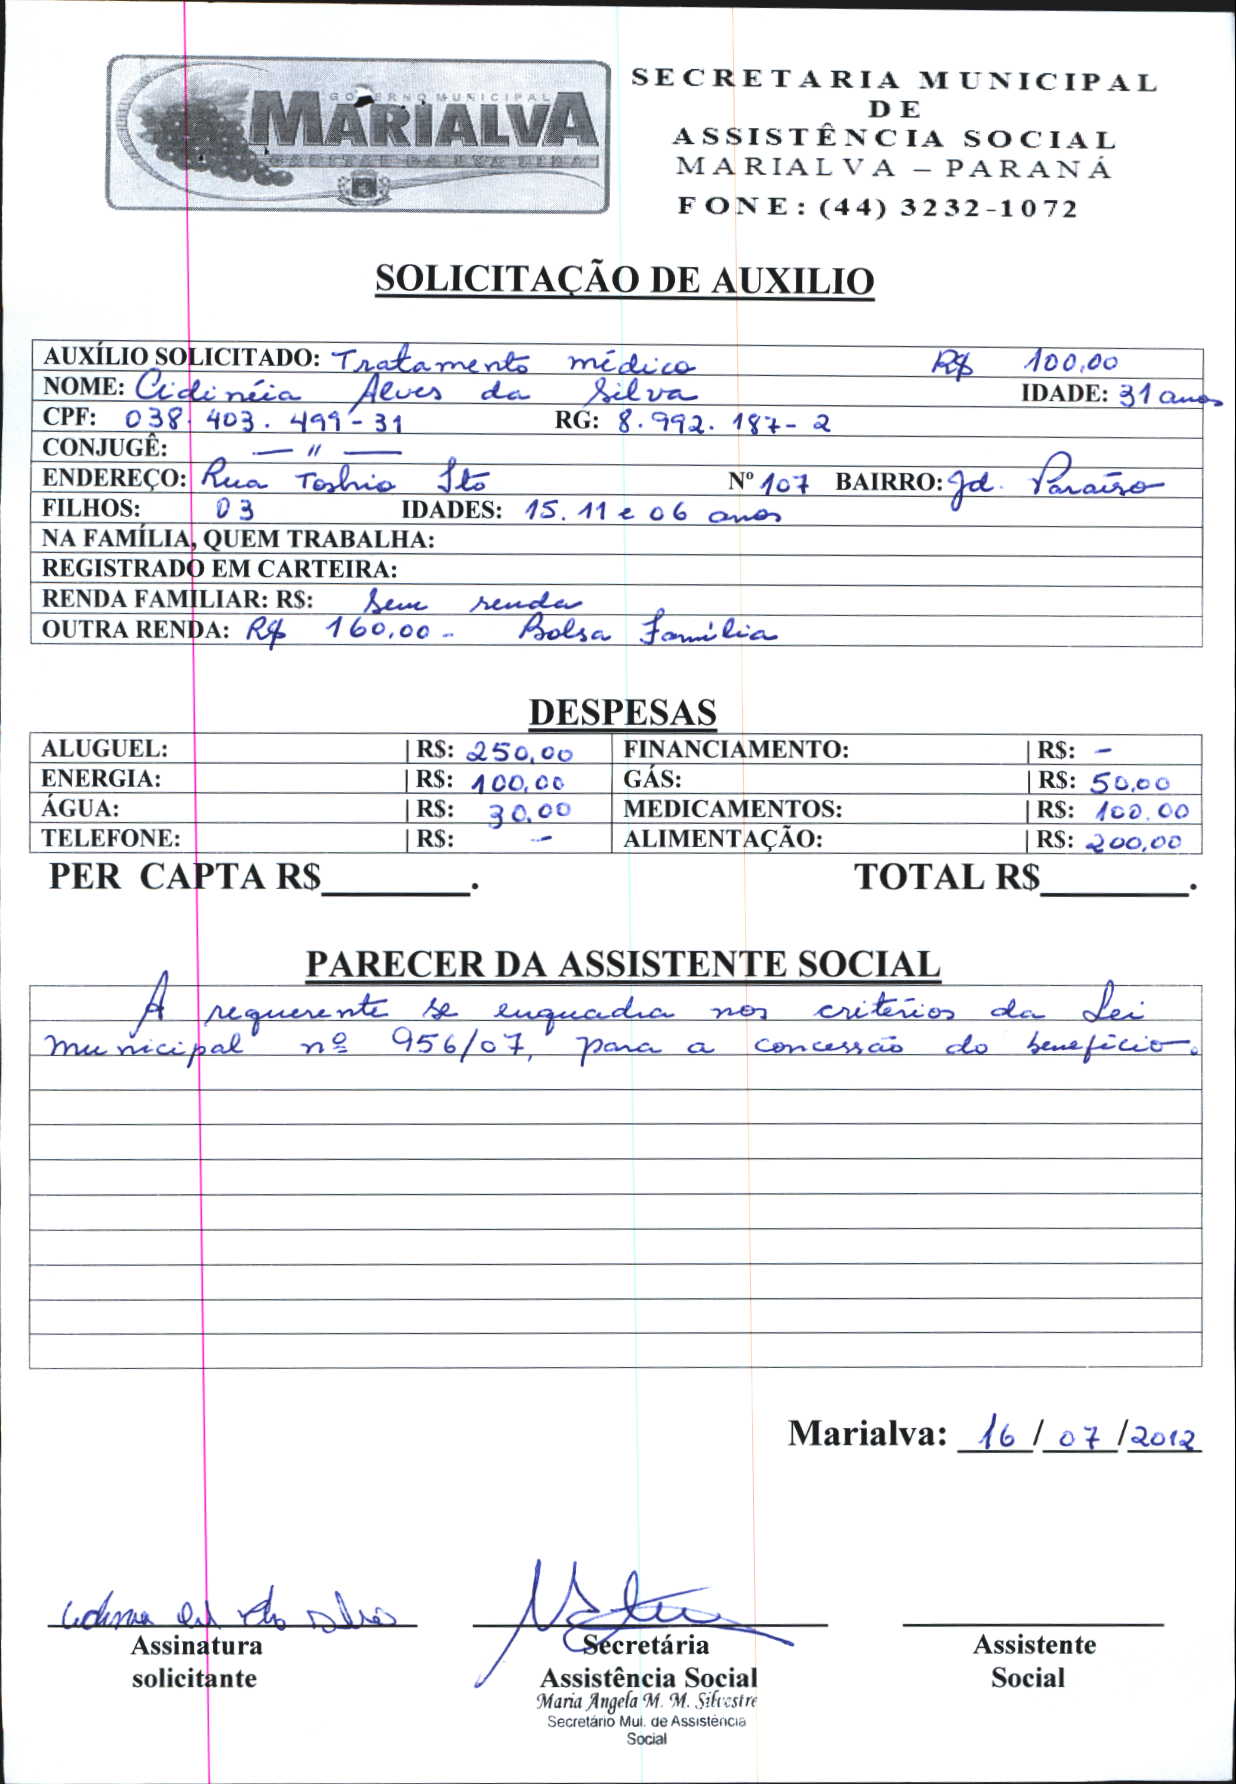 GOVERNO MUNICIPAL
MARIALVA
CAPITAL DA UVA FINA
SECRETARIA MUNICIPAL
DE
ASSISTÊNCIA SOCIAL
MARIALVA – PARANÁ
FONE: (44) 3232-1072
SOLICITAÇÃO DE AUXILIO
AUXÍLIO SOLICITADO: Tratamento médico R$ 100,00
NOME: Cidinéia Alves da Silva IDADE: 31 anos
CPF: 038.403.499-31 RG: 8.992.187-2
CONJUGÊ: — " —
ENDEREÇO: Rua Toshio Ito Nº 107 BAIRRO: Jd. Paraíso
FILHOS: 03 IDADES: 15. 11 e 06 anos
NA FAMÍLIA, QUEM TRABALHA:
REGISTRADO EM CARTEIRA:
RENDA FAMILIAR: R$: Sem renda
OUTRA RENDA: R$ 160,00 - Bolsa Família
DESPESAS
ALUGUEL: R$: 250,00 FINANCIAMENTO: R$: -
ENERGIA: R$: 100,00 GÁS: R$: 50,00
ÁGUA: R$: 30,00 MEDICAMENTOS: R$: 100.00
TELEFONE: R$: - ALIMENTAÇÃO: R$: 200,00
PER CAPTA R$________. TOTAL R$________.
PARECER DA ASSISTENTE SOCIAL
A requerente se enquadra nos critérios da Lei
Municipal nº 956/07, para a concessão do benefício.
Marialva: 16 / 07 / 2012
Assinatura solicitante
Secretária
Assistência Social
Maria Angela M. M. Silvestre
Secretário Mul. de Assistência
Social
Assistente
Social